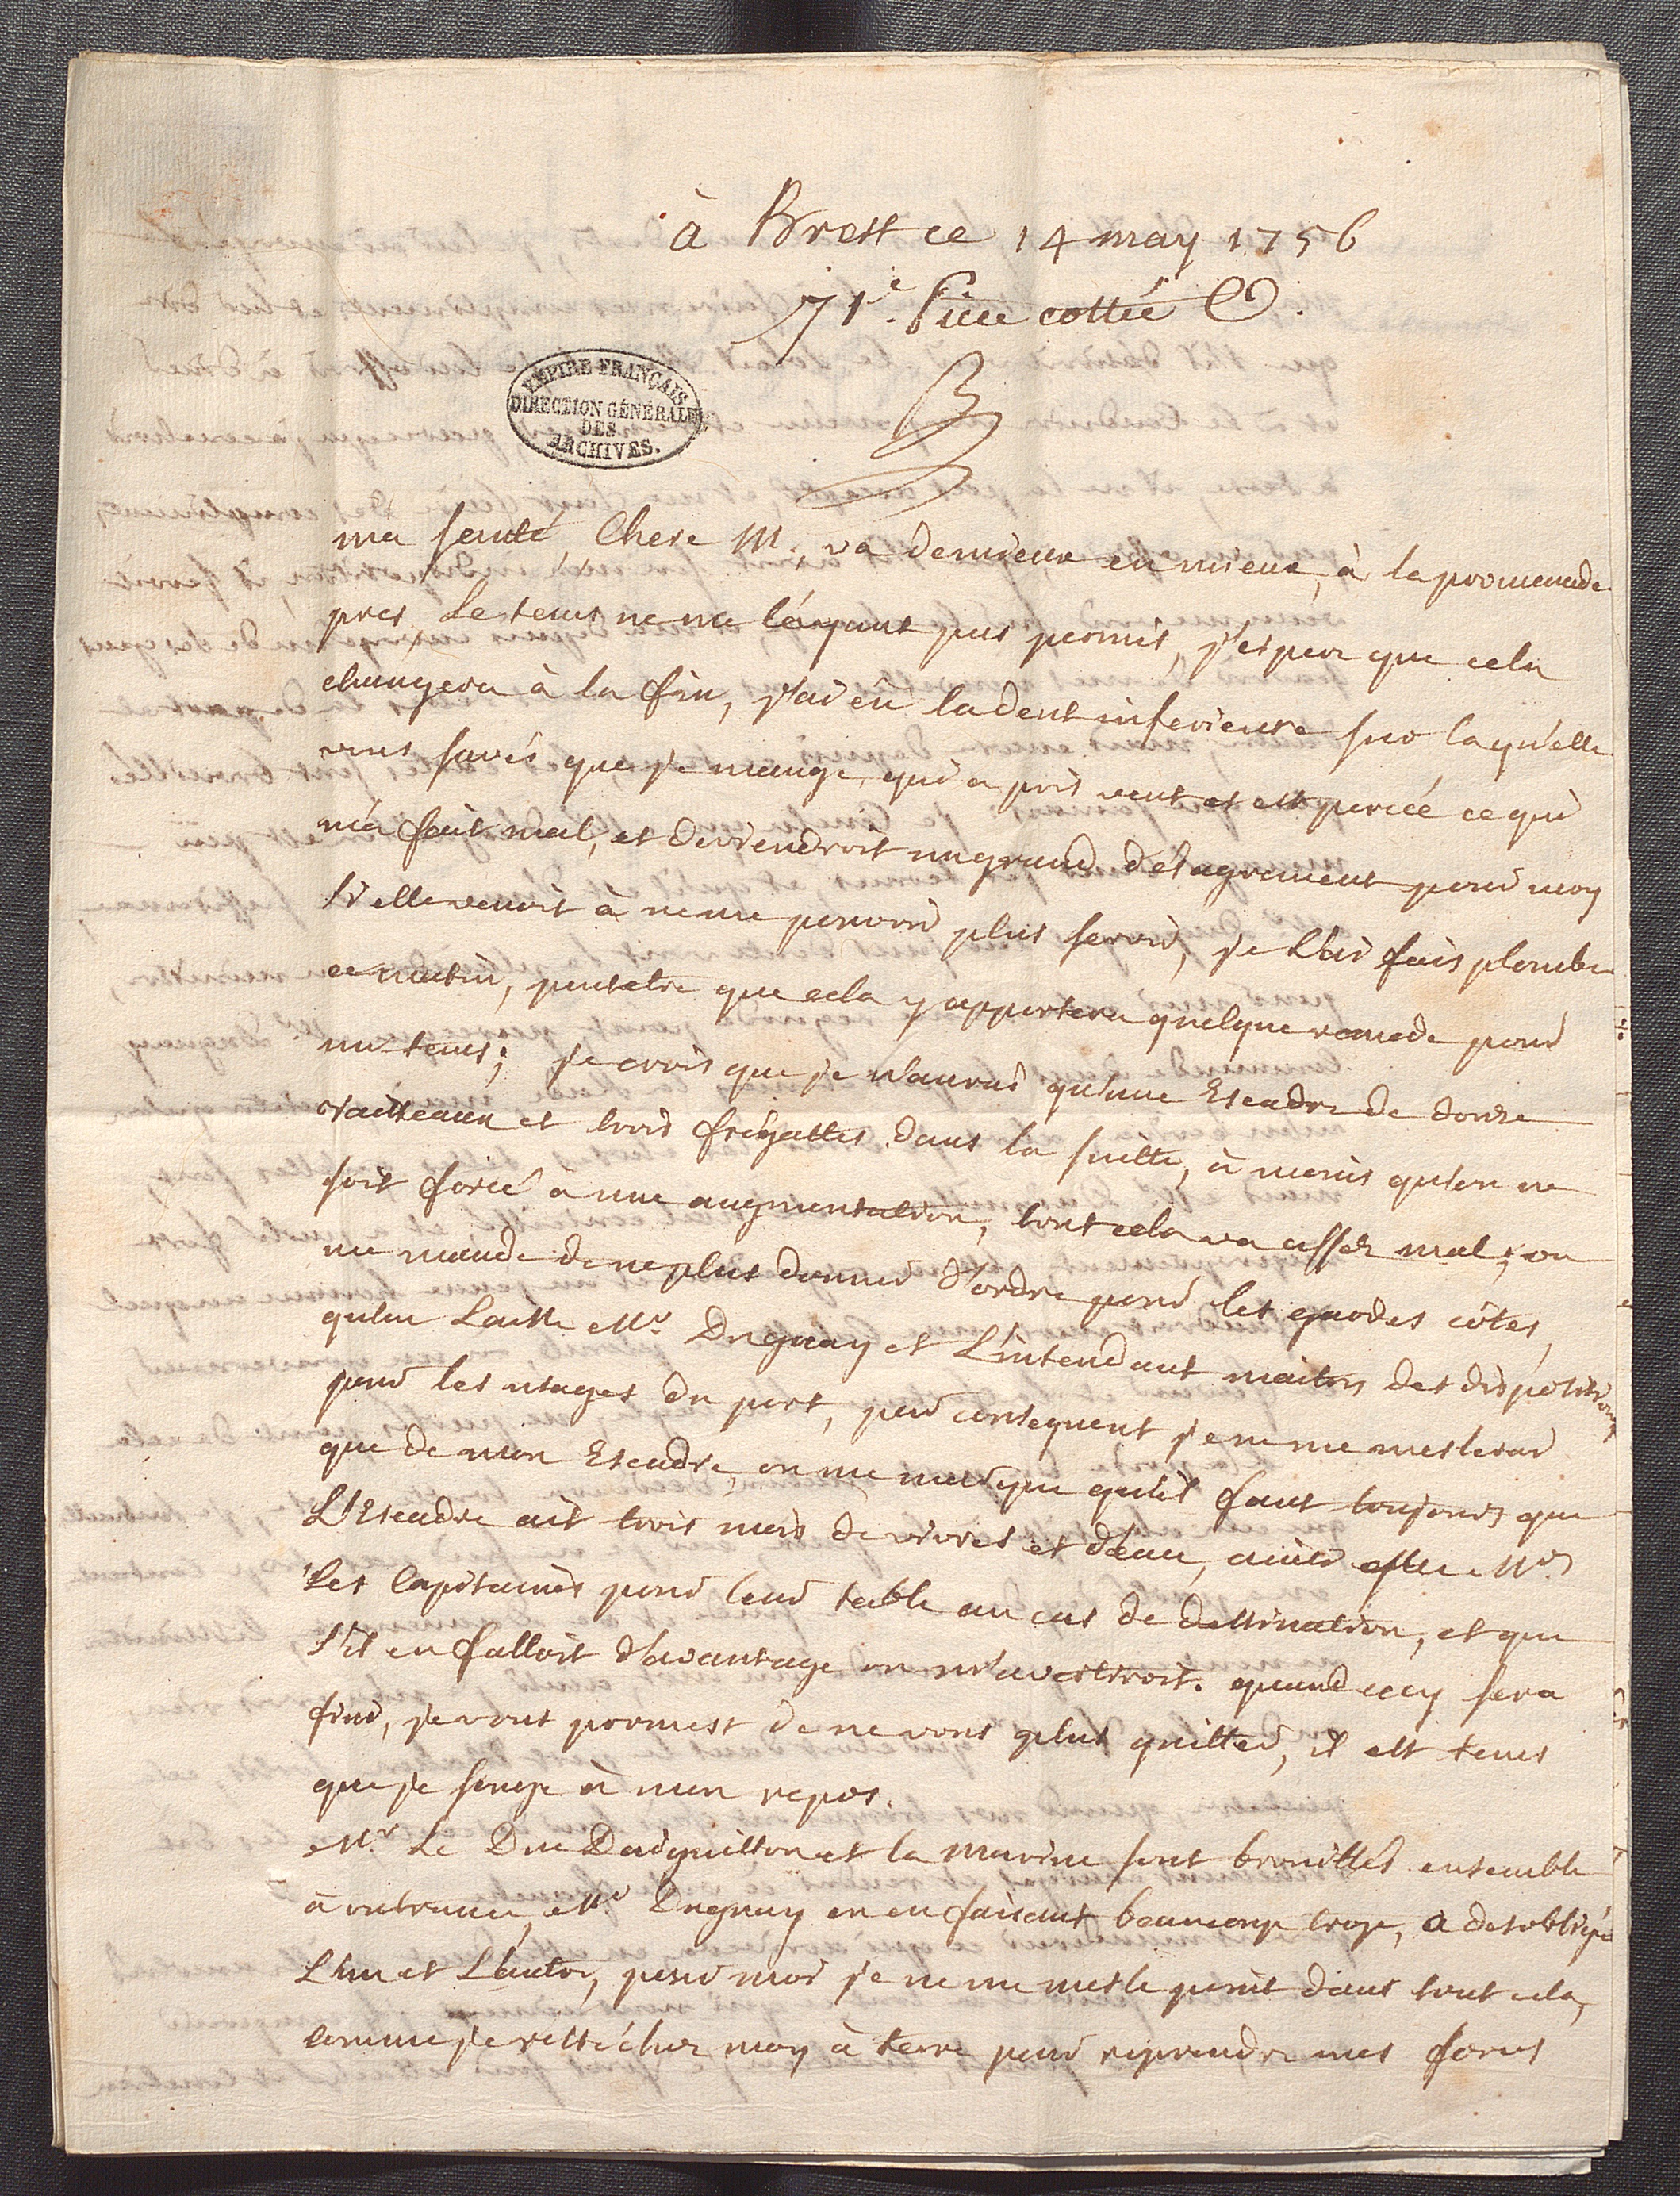 à Brest ce 14 may 1756
71e. Piece cottée
EMPIRE FRANÇAIS
DIRECTION GÉNÉRALE
DES
ARCHIVES.
ma santé Chere M., va demieux en mieux, à la promenade
pres, Le tems ne me l'éyant pas permis, j'espere que cela
changera à la fin, j'ai eû la dent inferieure sur laquelle
vous savés que je mange, qui a pris vent et est percée ce qui
m'a fait mal, et deviendroit un grand désagrement pour moy
si elle venoit à ne me pouvoir plus servir, je l'ai fais plomber
ce matin, peutetre que cela y apportera quelque remede pour
un tems; je crois que je n'aurai qu'une Escadre de douze
vaisseaux et trois frégattes dans la suitte, à moins qu'on ne
soit forcé à une augmentation, tout cela va assés mal; on
me mande de ne plus donner d'ordre pour les gardes côtes,
qu'on Laisse Mr. Duguay et L'intendant maitres des dispositions
pour les usages du port, par consequent je ne me meslerai
que de mon Escadre, on me marque qu'il faut toujours que
L'Escadre ait trois mois de vivres et d'eau, ainsi que Mrs
Les Capitaines pour leur table au cas de destination, et que
s'il en falloit d'avantage on m'avertiroit. quand cecy sera
fini, je vous promest de ne vous plus quitter, il est tems
que je songe à mon repos.
Mr. Le Duc Daiguillon et la marine sont brouillés ensemble
à outrance, Mr. Duguay en en faisant beaucoup trop, a desobligé
L'un et L'autre, pour moi je ne me mesle point dans tout cela,
comme je reste chez moy à terre pour reprendre mes forces